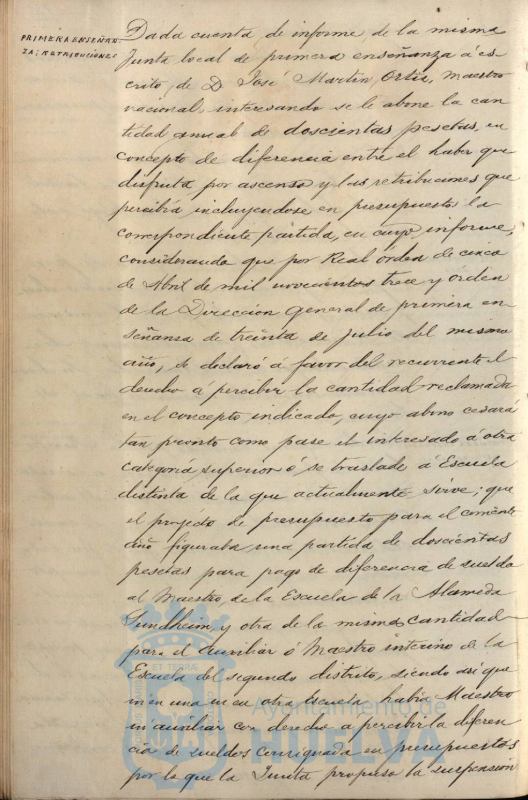 PRIMERA ENSEÑAN-
ZA; RETRIBUCIONES
Dada cuenta de informe de la misma
Junta local de primera enseñanza á es-
crito, de D. José Martin Ortiz, maestro
nacional, interesando se le abone la can-
tidad anual de doscientas pesetas, en
concepto de diferencia entre el haber que
disfruta por ascenso y las retribuciones que
percibia incluyendose en presupuestos la
correspondiente partida, en cuyo informe,
considerando que por Real órden de cinco
de Abril de mil novecientos trece y órden
de la Direccion General de primera en-
señanza de treinta de Julio del mismo
año, se declaró á favor del recurrente el
derecho á percibir la cantidad reclamada
en el concepto indicado, cuyo abono cesará
tan pronto como pase el interesado á otra
categoria superior ó se traslade á Escuela
distinta de la que actualmente sirve; que
el proyecto de presupuesto para el corriente
año figuraba una partida de doscientas
pesetas para pago de diferencia de sueldo
al Maestro, de la Escuela de la Alameda
Sundheim, y otra de la misma cantidad
para el Auxiliar ó Maestro interino de la
Escuela del segundo distrito, siendo asi que
ni en una ni en otra Escuela habia Maestro
ni auxiliar con derecho a percibir la diferen-
cia de sueldos consignada en presupuestos
por lo que la Junta propuso la suspensión
ET TERRÆ
Ayuntamiento de
HUELVA